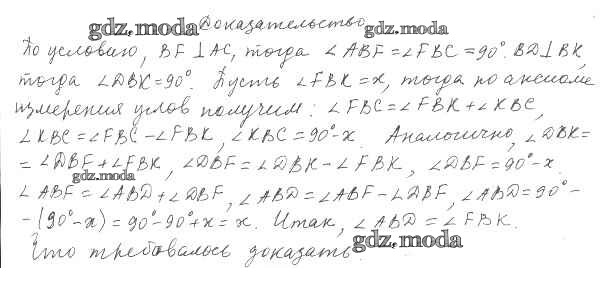 gdz.moda Доказательство gdz.moda
По условию, BF ⊥ AC, тогда ∠ABF = ∠FBC = 90°. BD ⊥ BK,
тогда ∠DBK = 90°. Пусть ∠FBK = x, тогда по аксиоме
измерения углов получим: ∠FBC = ∠FBK + ∠KBC,
∠KBC = ∠FBC - ∠FBK, ∠KBC = 90° - x. Аналогично, ∠DBK =
= ∠DBF + ∠FBK, ∠DBF = ∠DBK - ∠FBK, ∠DBF = 90° - x
gdz.moda
∠ABF = ∠ABD + ∠DBF, ∠ABD = ∠ABF - ∠DBF, ∠ABD = 90° -
- (90° - x) = 90° - 90° + x = x. Итак, ∠ABD = ∠FBK.
Что требовалось доказать gdz.moda